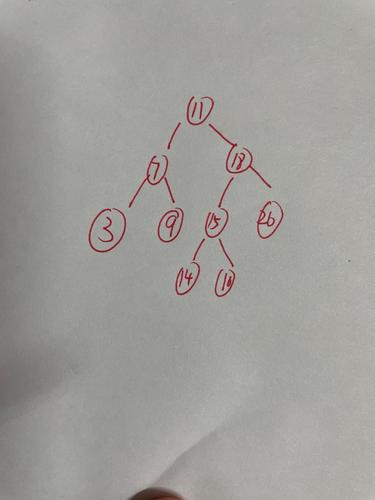 11
7 18
3 9 15 26
14 16